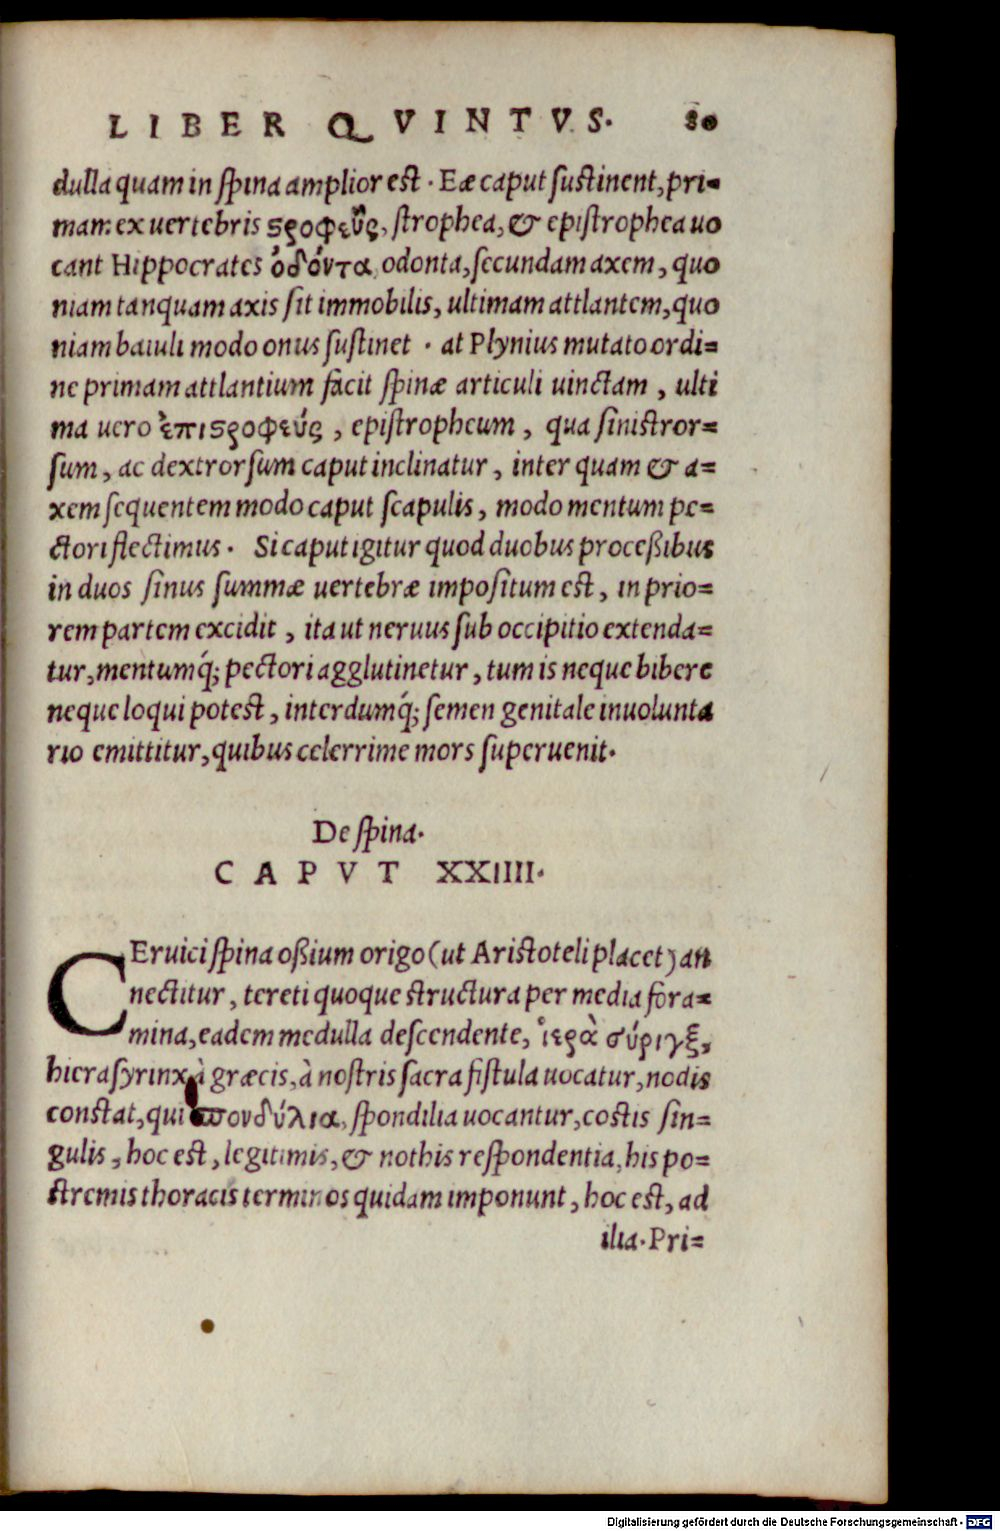 LIBER QVINTVS. 80
dulla quam in spina amplior est. Eæ caput sustinent, pri=
mam ex uertebris ςροφεῦς, strophea, & epistrophea uo
cant Hippocrates ὀδόντα, odonta, secundam axem, quo
niam tanquam axis sit immobilis, ultimam attlantem, quo
niam baiuli modo onus sustinet. at Plynius mutato ordi=
ne primam attlantium facit spinæ articuli uinctam, ulti
ma uero ἐπιςροφεύς, epistropheum, qua sinistror=
sum, ac dextrorsum caput inclinatur, inter quam & a=
xem sequentem modo caput scapulis, modo mentum pe=
ctori flectimus. Si caput igitur quod duobus proceßibus
in duos sinus summæ uertebræ impositum est, in prio=
rem partem excidit, ita ut neruus sub occipitio extenda=
tur, mentumq́; pectori agglutinetur, tum is neque bibere
neque loqui potest, interdumq́; semen genitale inuolunta
rio emittitur, quibus celerrime mors superuenit.
De spina.
CAPVT XXIIII.
CEruici spina oßium origo (ut Aristoteli placet) an
nectitur, tereti quoque structura per media fora=
mina, eadem medulla descendente, ἱερὰ σύριγξ,
hiera syrinx à græcis, à nostris sacra fistula uocatur, nodis
constat, qui σπονδύλια, spondilia uocantur, costis sin=
gulis, hoc est, legitimis, & nothis respondentia, his po=
stremis thoracis terminos quidam imponunt, hoc est, ad
ilia. Pri=
Digitalisierung gefördert durch die Deutsche Forschungsgemeinschaft - DFG